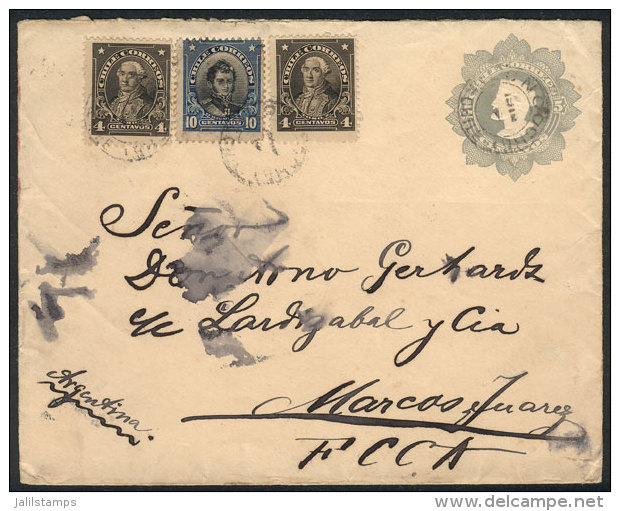 CHILE CORREOS
4 CENTAVOS 4
CHILE CORREOS
10 CENTAVOS 10
CHILE CORREOS
4 CENTAVOS 4
Señor
Don Arno Gerhardz
c/c Lardizabal y Cia
Marcos Juarez
F C C A
Argentina.
jalilstamps
delcampe.net